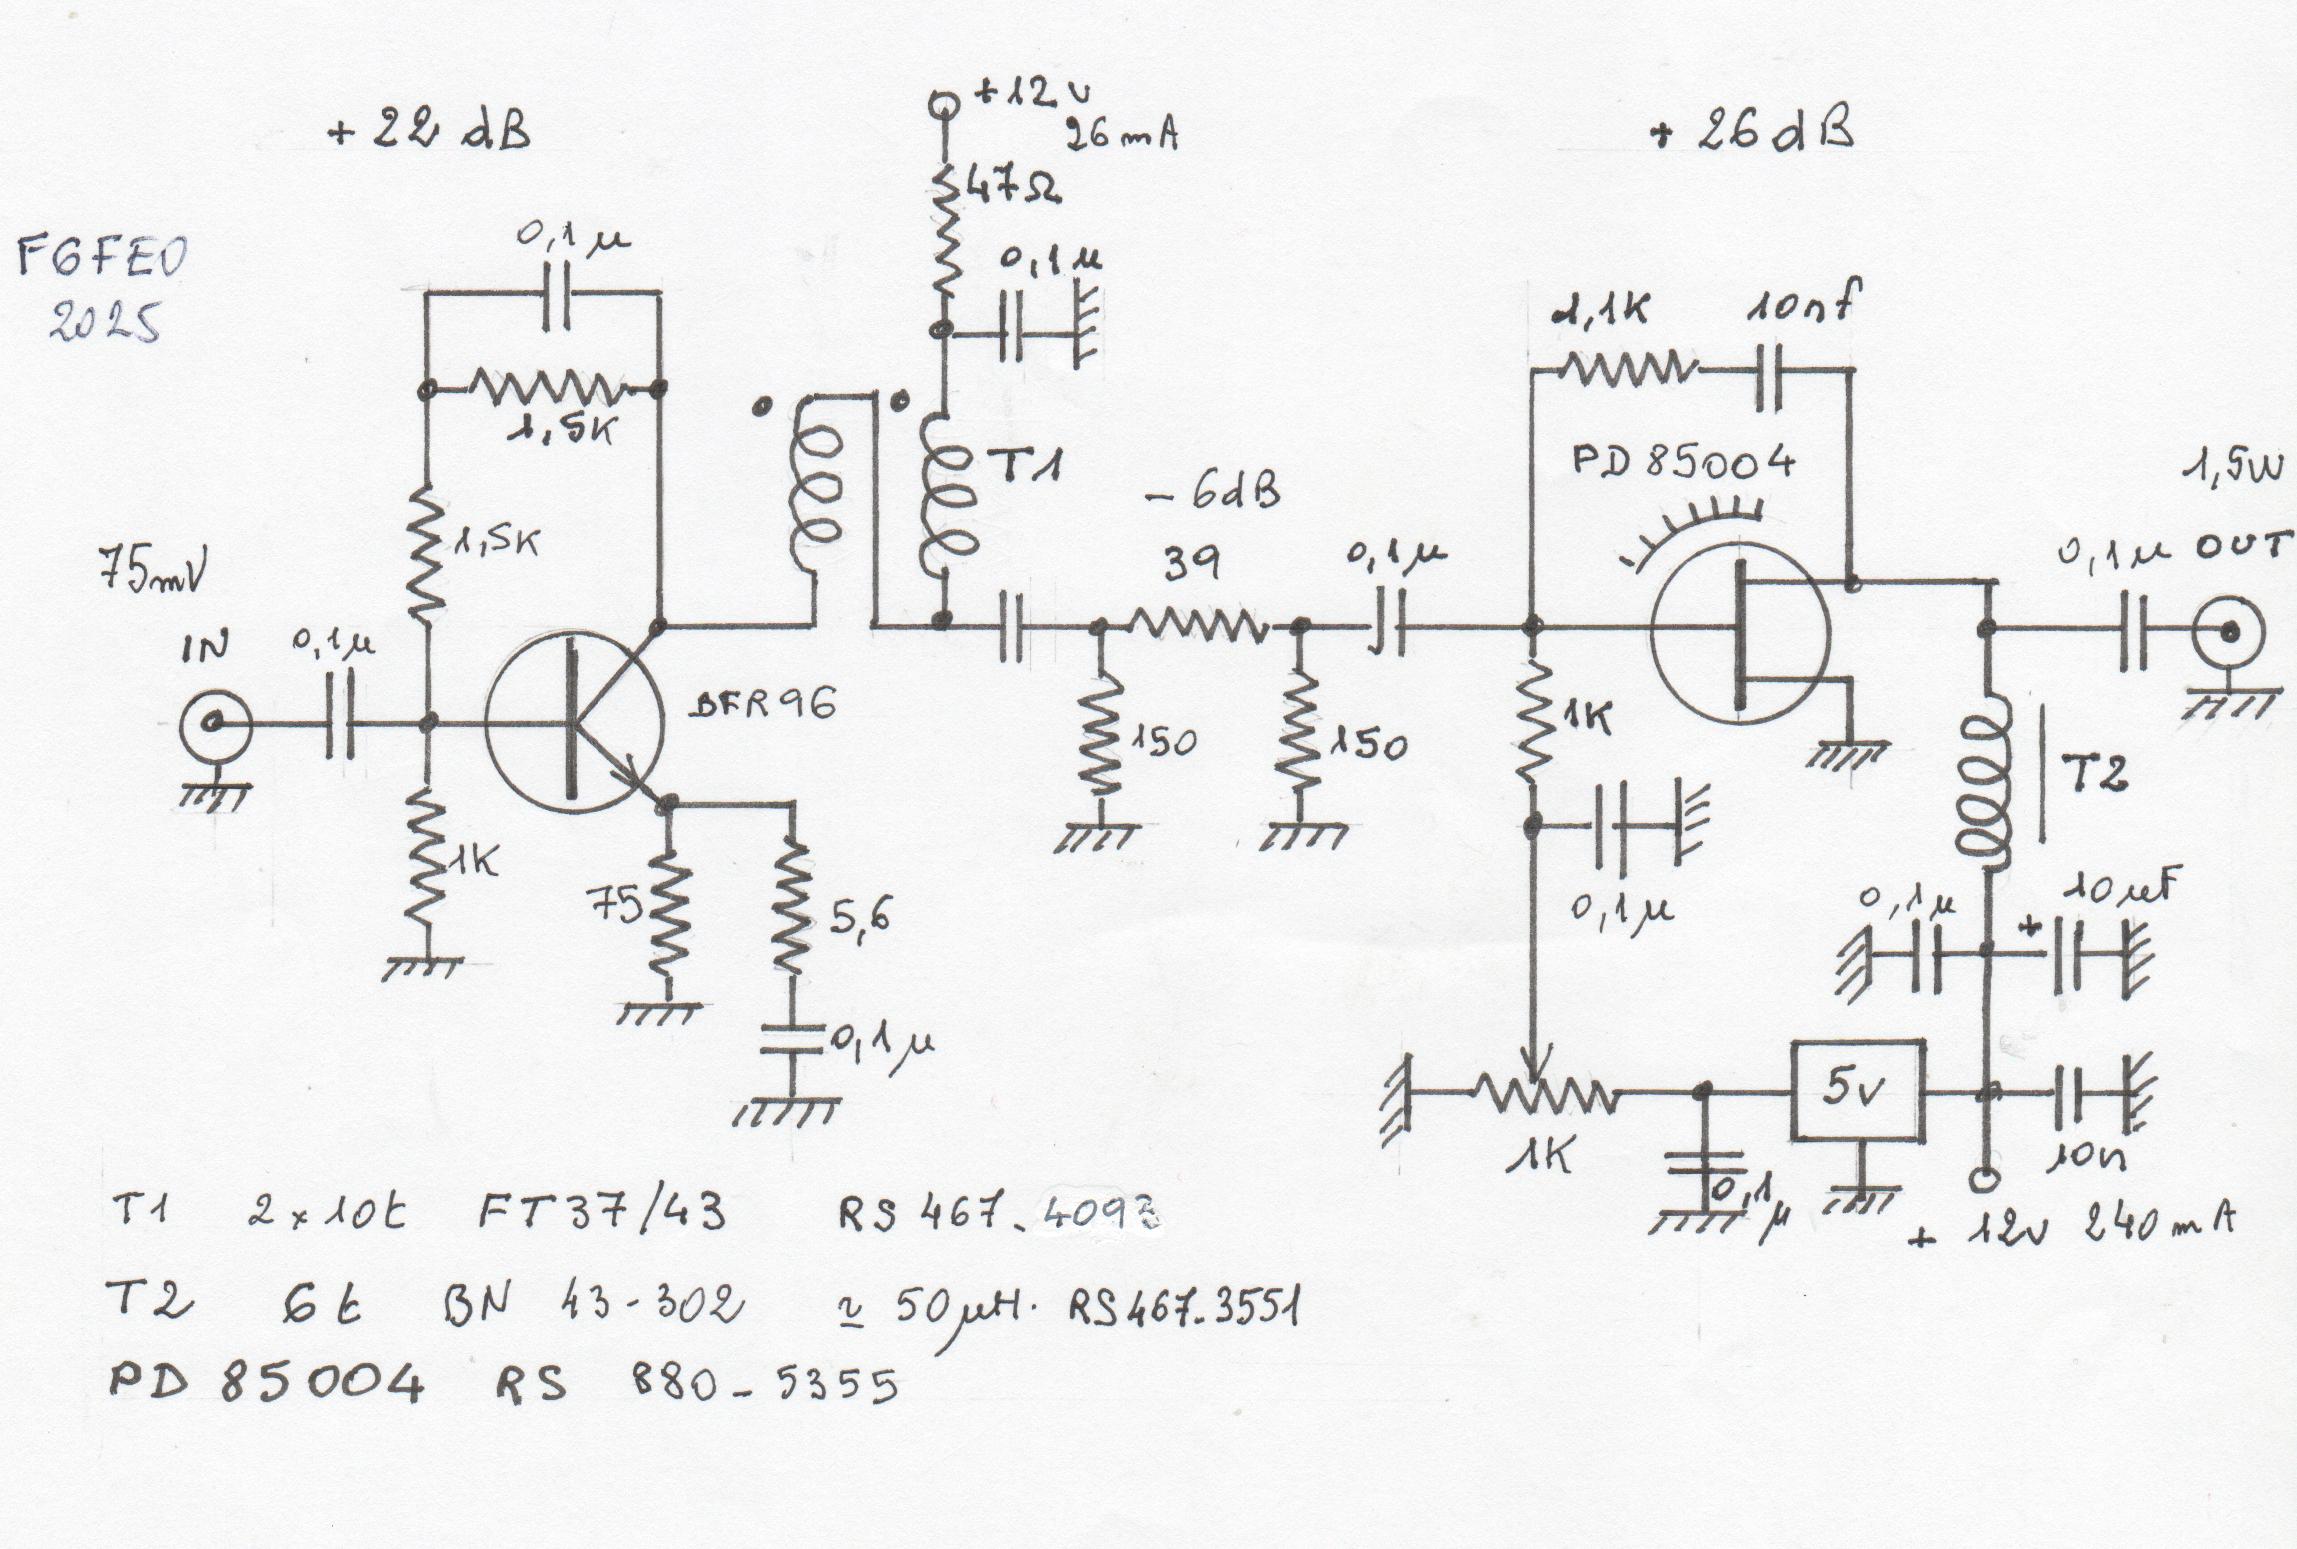 + 22 dB
+12v
26mA
+ 26dB
47Ω
F6FEO
2025
0,1µ
0,1µ
1,5K
1,1K
10nf
PD 85004
T1
- 6dB
39
0,1µ
1,5W
0,1µ OUT
75mV
IN
0,1µ
1,5K
BFR96
1K
75
5,6
0,1µ
150
150
1K
0,1µ
T2
0,1µ
+
10µF
5v
1K
0,1µ
10n
+ 12v 240mA
T1 2x10t FT37/43 RS 467-4093
T2 6t BN 43-302 ≃ 50µH. RS467-3551
PD 85004 RS 880-5355